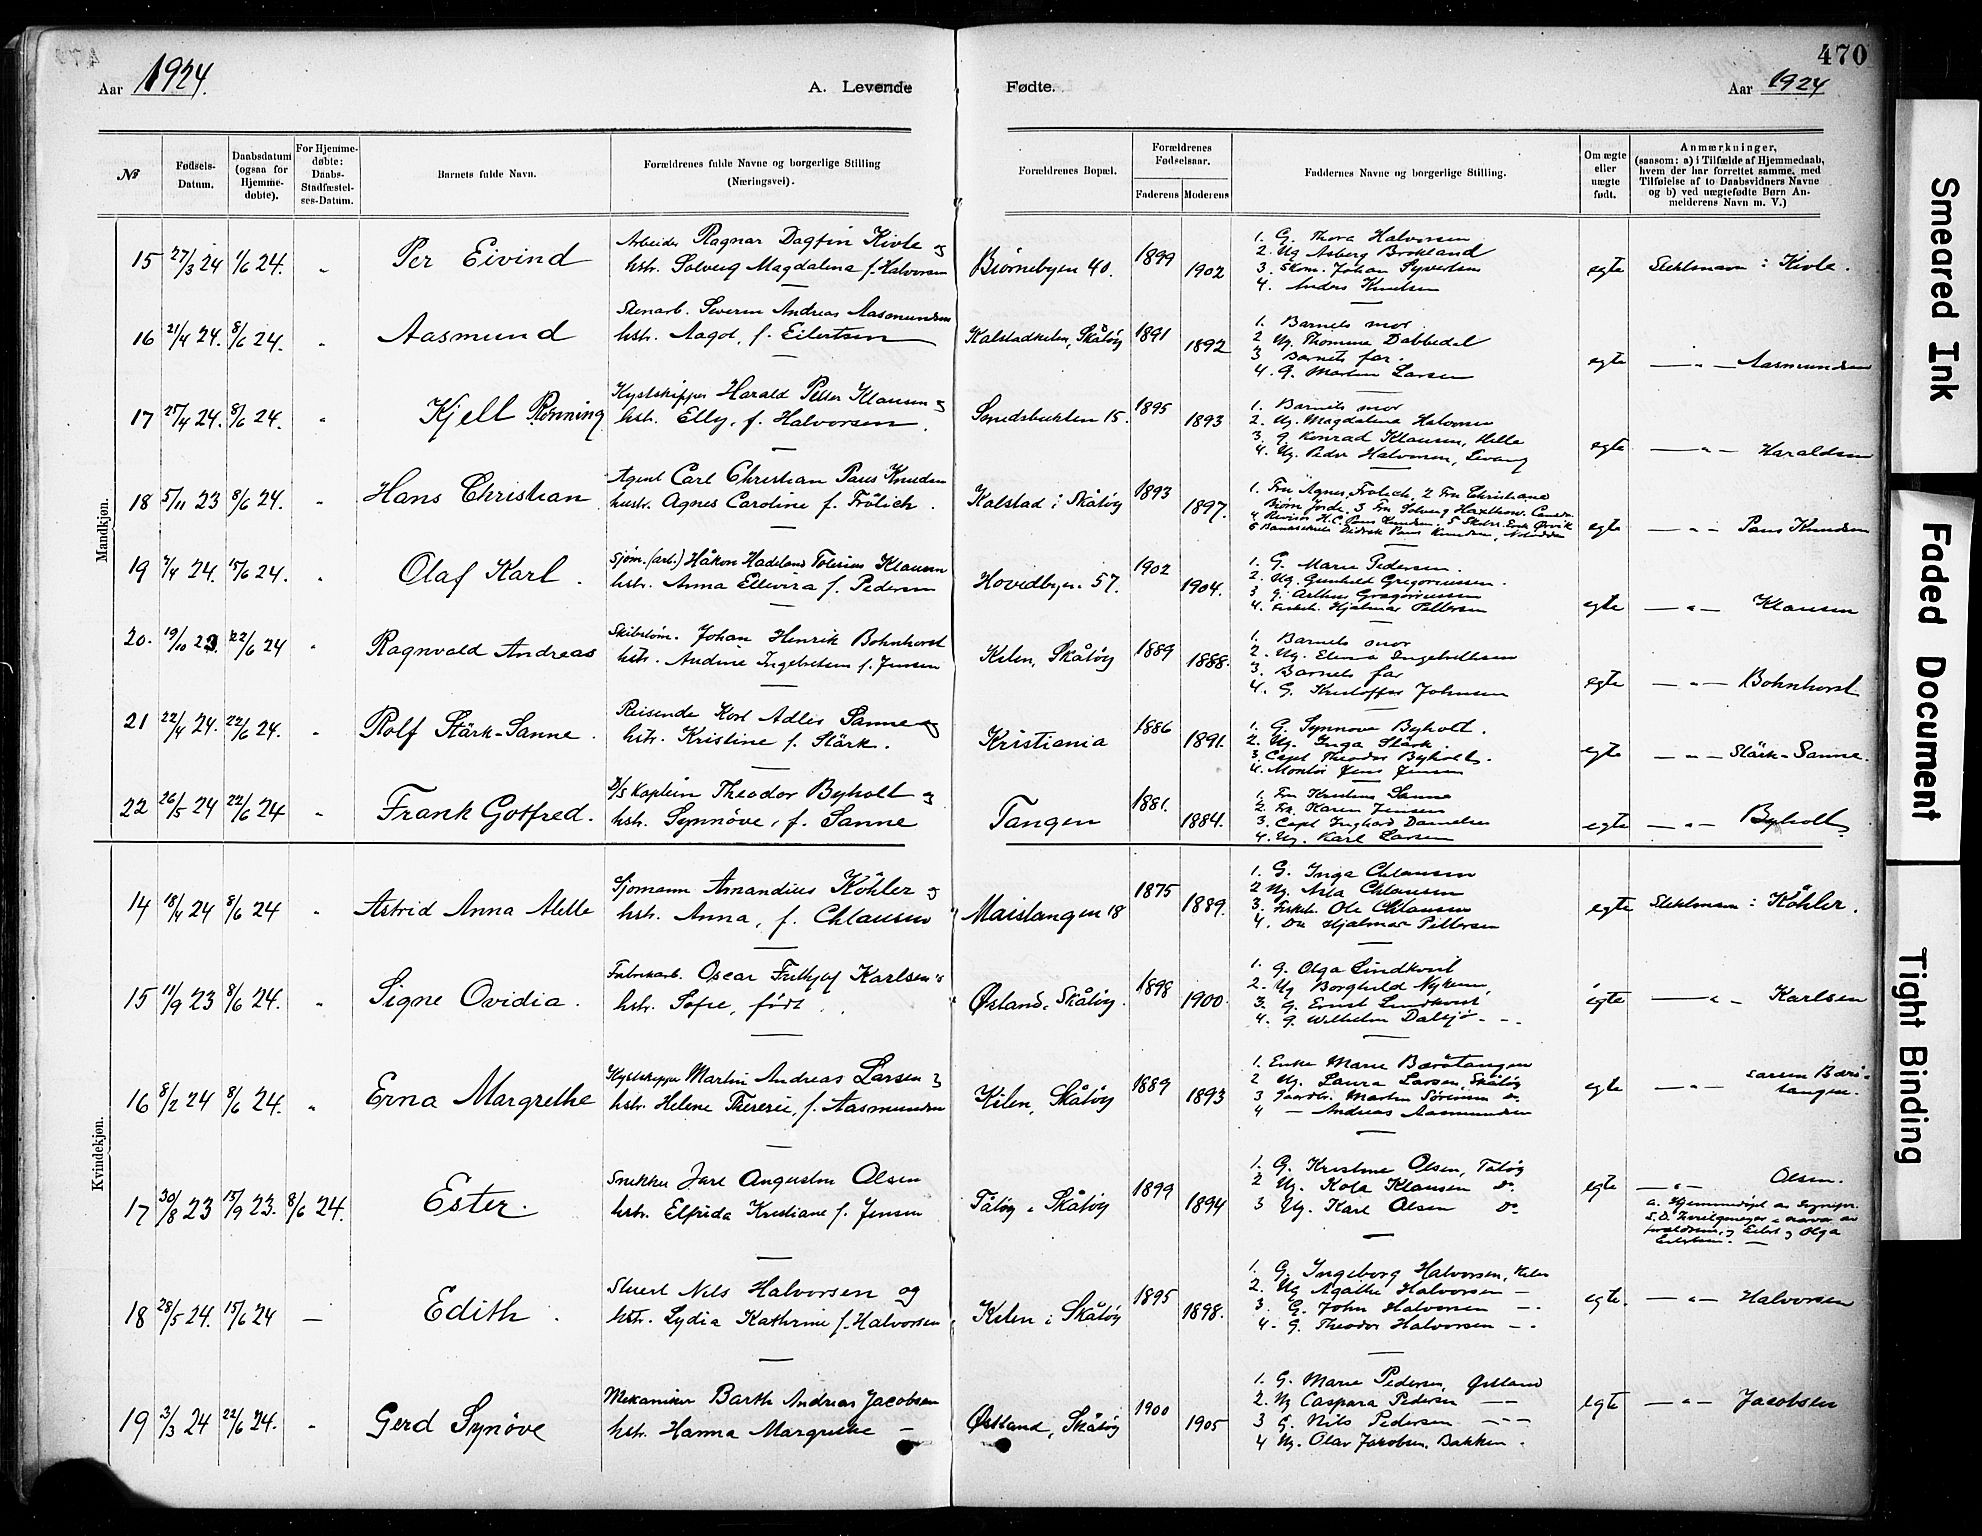 470
Aar 1924.
A. Levende
Fødte.
Aar 1924
№
Fødsels-Datum.
Daabsdatum (ogsaa for Hjemme-døbte).
For Hjemme-døbte: Daabs-Stadfæstel-ses-Datum.
Barnets fulde Navn.
Forældrenes fulde Navne og borgerlige Stilling (Næringsvei).
Forældrenes Bopæl.
Forældrenes Fødselsaar.
Faderens
Moderens
Faddernes Navne og borgerlige Stilling.
Om ægte eller uægte født.
Anmærkninger, (saasom: a) i Tilfælde af Hjemmedaab, hvem der har forrettet samme, med Tilføielse af to Daabsvidners Navne og b) ved uægtefødte Børn An-melderens Navn m. V.)
Mandkjøn.
15 27/3 24 1/6 24. " Per Eivind
Arbeider Ragnar Dagfin Kivle og
hstr. Solveig Magdalena f. Halvorsen
Bjørnebyen 40. 1899 1902
1. G. Thora Halvorsen
2. Ug Asberg Brokland
3. Skom. Johan Syvertsen
4. Anders Knudsen
egte Slektsnavn : Kivle.
16 21/4 24. 8/6 24. " Aasmund
Stenarb. Severin Andreas Aasmundsen
hstr. Aagot, f. Eilertsen
Kalstadkilen, Skåtøy 1891 1892
1. Barnets mor
2. Ug. Thomine Dobbedal
3 Barnets far.
4. G. Martin Larsen
egte — " — Aasmundsen
17 25/4 24. 8/6 24. " Kjell Rønning
Kystskipper Harald Peter Klausen og
hstr. Elly, f. Halvorsen.
Smedsbukten 15. 1895 1893
1. Barnets mor
2. Ug. Magdalena Halvorsen
3. G. Konrad Klausen, Helle
4. Ug. Peder Halvorsen, Levang
egte — " — Haraldsen
18 5/11 23 8/6 24. " Hans Christian
Agent Carl Christian Paus Knudsen
hustr. Agnes Caroline f. Frölich.
Kalstad i Skåtøy 1893 1897.
1. Fru Agnes Frölich, 2 Fru Christiane
Bjørn Jorde. 3 Fru Solveig
4 Revisor H.C. Paus Knudsen. 5 Erik Ørvik
6 Didrik Paus Knudsen, Notodden
egte — " — Paus Knudsen
19 7/4 24. 15/6 24. " Olaf Karl.
Sjøm. (arb.) Håkon Hadeland Tobias Klausen
hstr. Anna Ellevira f. Pedersen
Hovedbyen 57. 1902 1904.
1. G. Marie Pedersen.
2. Ug. Gunhild Gregoriussen.
3 G. Arthur Gregoriussen
4. Hjalmar Pettersen
egte — " — Klausen
20. 19/10 23. 22/6 24 " Ragnvald Andreas
Skibstøm. Johan Henrik Bohnhorst
hstr. Andine Ingebretsen f. Jensen
Kilen, Skåtøy 1889 1888.
1. Barnets mor
2. Ug. Elena Ingebretsen
3. Barnets far
4. G. Kristoffer Johnsen
egte — " — Bohnhorst
21 22/4 24. 22/6 24. " Rolf Stärk-Sanne.
Reisende Karl Adler Sanne og
hstr. Kristine f. Stärk.
Kristiania 1886 1891.
1. G. Synnøve Byholt.
2. Ug. Inga Stärk
3. Capt Theodor Byholt.
4. Montør Jens Jensen
egte — " — Stärk-Sanne.
22 26/5 24 22/6 24 " Frank Gotfred.
D/S Kaptein Theodor Byholt og
hstr. Synnöve, f. Sanne
Tangen 1881. 1884.
1. Fru Kristine Sanne
2. Frk. Karen Jensen
3. Capt Inghard Danielsen
4. Ug. Karl Larsen
egte — " — Byholt
Kvindekjøn.
14 18/4 24 8/6 24 " Astrid Anna Alette
Sjømann Amandius Köhler og
hstr. Anna, f. Chlausen
Maistangen 18 1875 1889.
1. G. Inga Chlausen
2 Ug. Asta Chlausen
3. Ole Chlausen
4. Do Hjalmar Pettersen
egte Slektsnavn : Köhler.
15 11/9 23 8/6 24. " Signe Ovidia.
Fabrikarb. Oscar Fritjof Karlsen
hstr. Sofie, født
Østland. Skåtøy. 1898 1900.
1. G. Olga Lindkvist
2. Ug Borghild Nyken
3. G. Ernst Lindkvist
4. G. Wilhelm Dalsjø
egte — " — Karlsen
16 8/2 24 8/6 24. " Erna Margrethe
Kystskipper Martin Andreas Larsen og
hstr. Helene Therese, f. Aasmundsen
Kilen, Skåtøy 1889 1893
1. Enke Marie Barøtangen
2 Ug. Laura Larsen, Skåtøy
3 Martin Sørensen do
4 — Andreas Aasmundsen
egte — " — Larsen Barø-tangen.
17 30/8 23 15/9 23. 8/6 24. Ester.
Snekker Jarl Augustin Olsen
hstr. Elfrida Kristiane f. Jensen
Tåtøy i Skåtøy 1899 1894
1. G. Kristine Olsen, Tåtøy
2 Ug. Kola Klausen Do
3 Ug. Karl Olsen Do
egte — " — Olsen.
a. Hjemmedøpt av
forældrene, og Eilert og Olga
Eilertsen.
18 28/5 24. 15/6 24 — Edith.
Stuert Nils Halvorsen og
hstr. Lydia Kathrine f. Halvorsen
Kilen i Skåtøy 1895 1898.
1. G. Ingeborg Halvorsen, Kilen
2. Ug Agathe Halvorsen —
3. G. John Halvorsen —
4. G. Theodor Halvorsen —
egte. — " — Halvorsen
19 3/3 24 22/6 24. " Gerd Synöve
Mekaniker Barth Andreas Jacobsen
hstr. Hanna Margrethe —
Østland, Skåtøy 1900 1905
1. G. Marie Pedersen, Østland
2. Ug Caspara Pedersen — —
3 G. Nils Pedersen — — —
4 Ug. Olav Jakobsen. Bakken.
egte — " — Jacobsen
Smeared Ink
Faded Document
Tight Binding